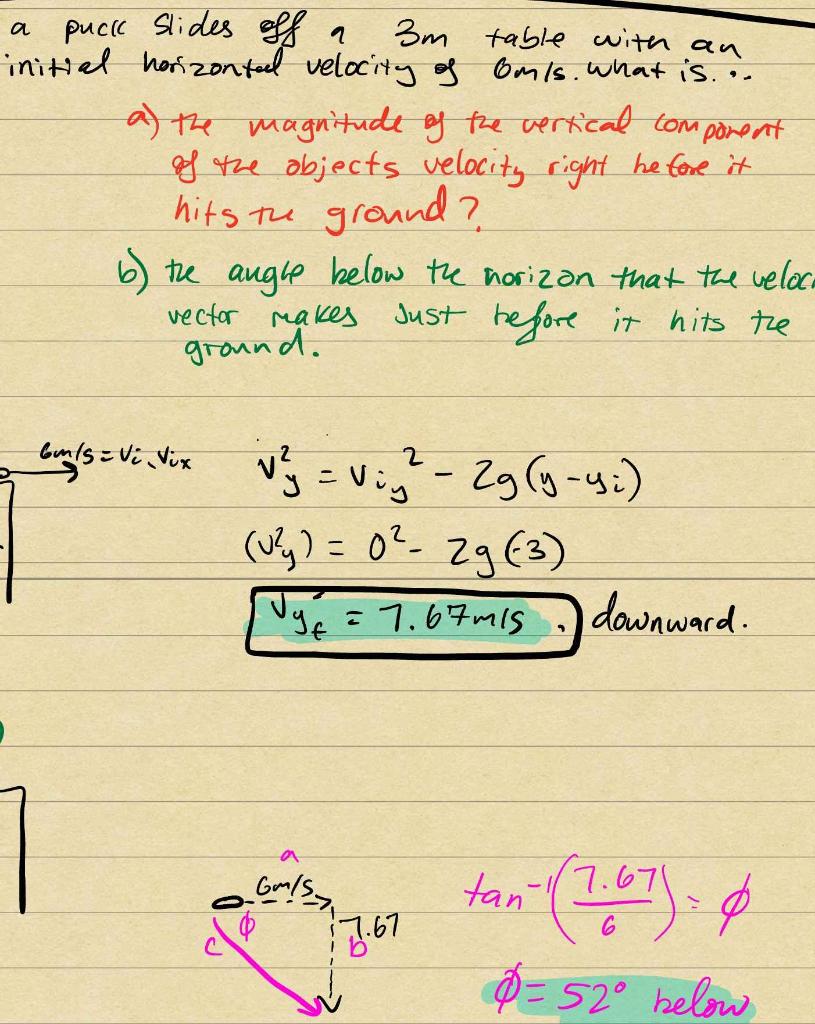 a puck slides off a 3m table with an
initial horizontal velocity of 6m/s. what is...
a) the magnitude of the vertical component
of the objects velocity right before it
hits the ground?
b) the angle below the horizon that the veloci
vector makes just before it hits the
ground.
6m/s = Vi, Vix
V²y = Viy² - 2g(y-yi)
(V²y) = 0² - 2g(-3)
Vyf = 7.67m/s. downward.
a
6m/s
7.67
c φ b
tan⁻¹(7.67/6) = φ
φ = 52° below